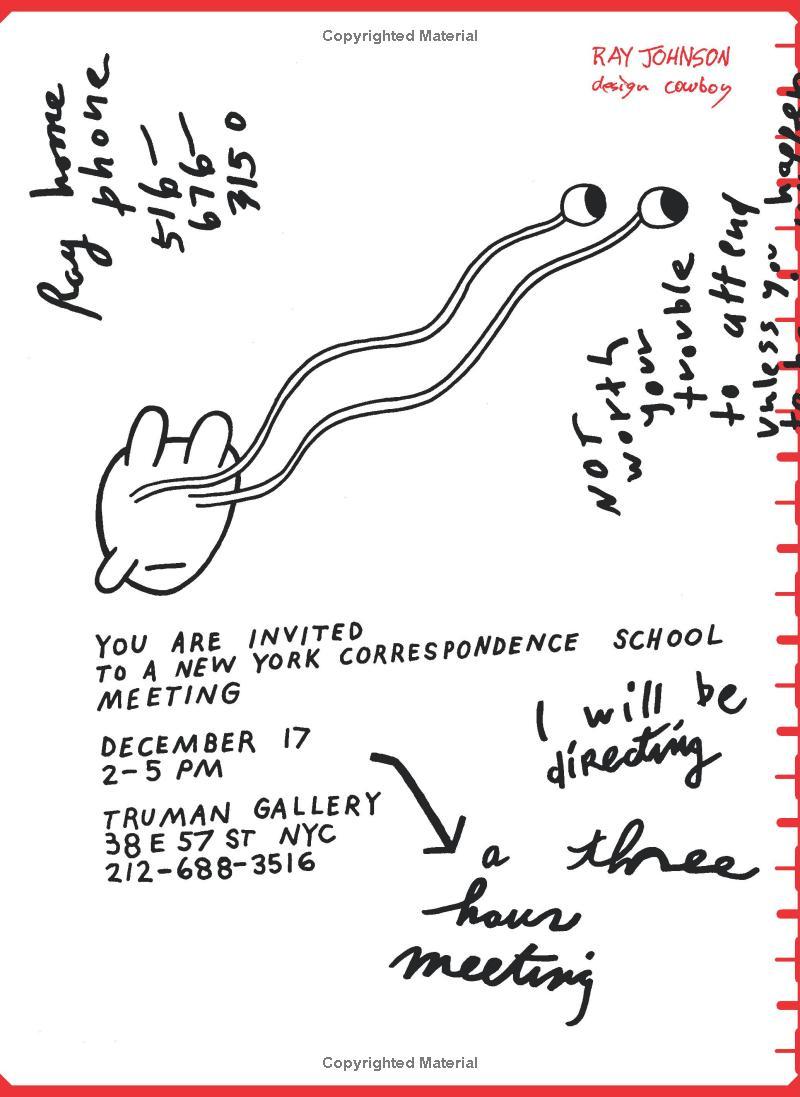 Copyrighted Material
RAY JOHNSON
design cowboy
Ray home
phone
516—
676—
3150
NOT
worth
your
trouble
to attend
unless you happen
YOU ARE INVITED
TO A NEW YORK CORRESPONDENCE SCHOOL
MEETING
DECEMBER 17
2-5 PM
TRUMAN GALLERY
38 E 57 ST NYC
212-688-3516
I will be
directing
a three
hour
meeting
Copyrighted Material